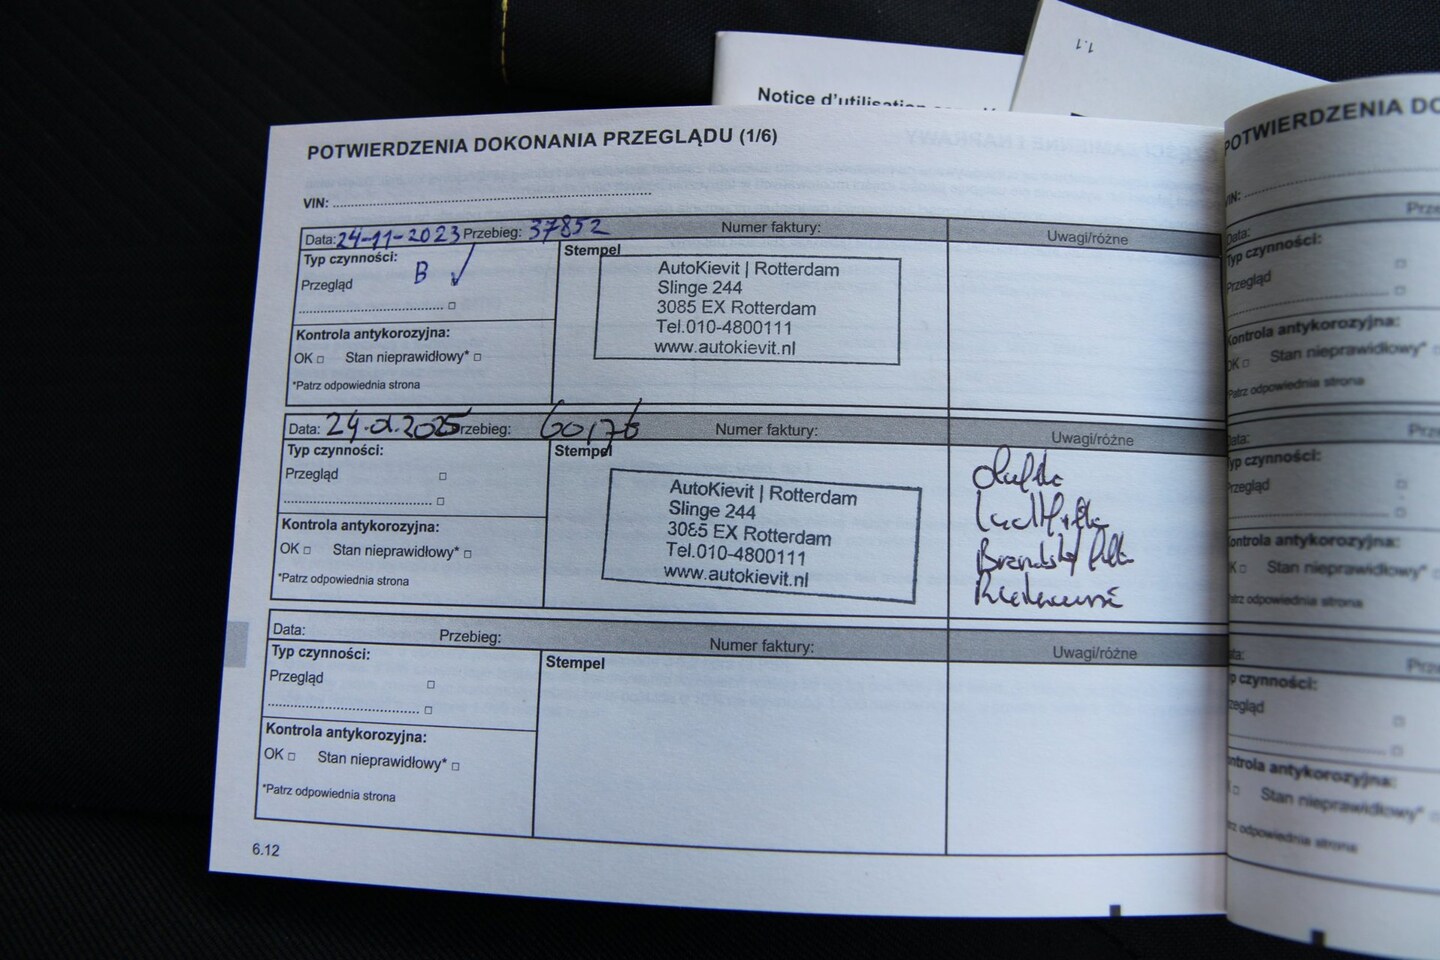 1.1
Notice d'utilisation
POTWIERDZENIA DOKONANIA PRZEGLĄDU (1/6)
VIN:
Data: 24-11-2023 Przebieg: 37852 Numer faktury: Uwagi/różne
Typ czynności:
Przegląd B ✓
Kontrola antykorozyjna:
OK □ Stan nieprawidłowy* □
*Patrz odpowiednia strona
Stempel
AutoKievit | Rotterdam
Slinge 244
3085 EX Rotterdam
Tel.010-4800111
www.autokievit.nl
Data: 24.01.2025 Przebieg: 60176 Numer faktury: Uwagi/różne
Typ czynności:
Przegląd □
□
Kontrola antykorozyjna:
OK □ Stan nieprawidłowy* □
*Patrz odpowiednia strona
Stempel
AutoKievit | Rotterdam
Slinge 244
3085 EX Rotterdam
Tel.010-4800111
www.autokievit.nl
Data: Przebieg: Numer faktury: Uwagi/różne
Typ czynności:
Przegląd □
□
Kontrola antykorozyjna:
OK □ Stan nieprawidłowy* □
*Patrz odpowiednia strona
Stempel
6.12
POTWIERDZENIA
VIN:
Data:
Typ czynności:
Przegląd □
□
Kontrola antykorozyjna:
OK □ Stan nieprawidłowy*
*Patrz odpowiednia strona
Data:
Typ czynności:
Przegląd □
□
Kontrola antykorozyjna:
OK □ Stan nieprawidłowy*
Patrz odpowiednia strona
czynności:
□
antykorozyjna:
□ Stan nieprawidłowy*
odpowiednia strona